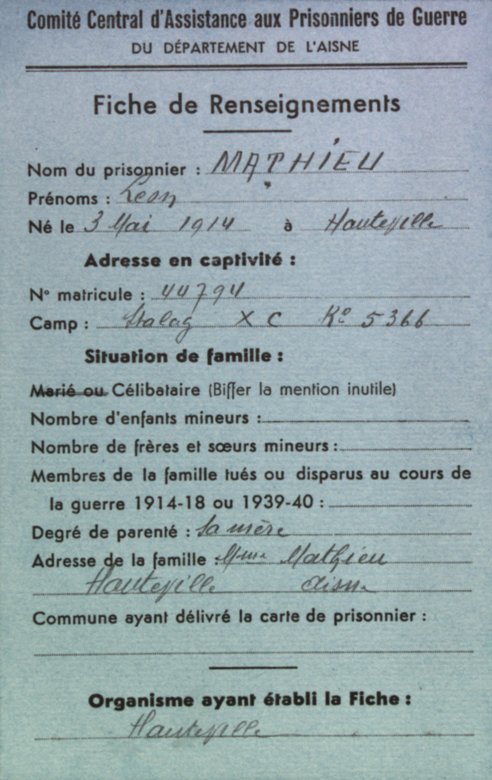 Comité Central d'Assistance aux Prisonniers de Guerre
DU DÉPARTEMENT DE L'AISNE
Fiche de Renseignements
Nom du prisonnier : MATHIEU
Prénoms : Léon
Né le 3 Mai 1914 à Hauteville
Adresse en captivité :
N° matricule : 44794
Camp : Stalag X C Ko 5366
Situation de famille :
Marié ou Célibataire (Biffer la mention inutile)
Nombre d'enfants mineurs :
Nombre de frères et sœurs mineurs :
Membres de la famille tués ou disparus au cours de
la guerre 1914-18 ou 1939-40 :
Degré de parenté : Sa mère
Adresse de la famille : Mme Mathieu
Hauteville Aisne
Commune ayant délivré la carte de prisonnier :
Organisme ayant établi la Fiche :
Hauteville